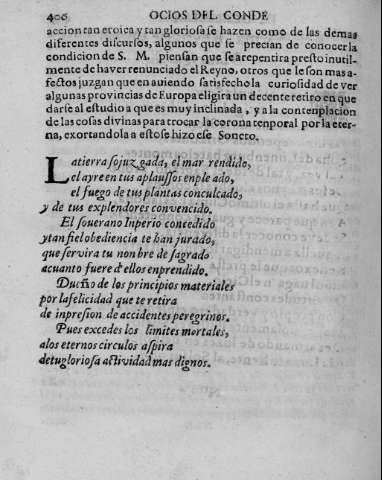 406 OCIOS DEL CONDE
accion tan eroica y tan gloriosa se hazen como de las demas
diferentes discursos, algunos que se precian de conocer la
condicion de S. M. piensan que se arepentira presto inutil-
mente de haver renunciado el Reyno, otros que le son mas a-
fectos juzgan que en auiendo satisfecho la curiosidad de ver
algunas provincias de Europa eligira un decente retiro en que
darse al estudio a que es muy inclinada, y a la contenplacion
de las cosas divinas para trocar la corona tenporal por la eter-
na, exortandola a esto se hizo ese Soneto.
La tierra sojuzgada, el mar rendido,
el ayre en tus aplaussos enpleado,
el fuego de tus plantas conculcado,
y de tus explendores convencido.
El souerano Inperio concedido
y tan fiel obediencia te han jurado,
que servira tu nonbre de sagrado
a cuanto fuere d'ellos enprendido.
Dueño de los principios materiales
por la felicidad que te retira
de inpresion de accidentes peregrinos.
Pues excedes los limites mortales,
a los eternos circulos aspira
de tu gloriosa actividad mas dignos.